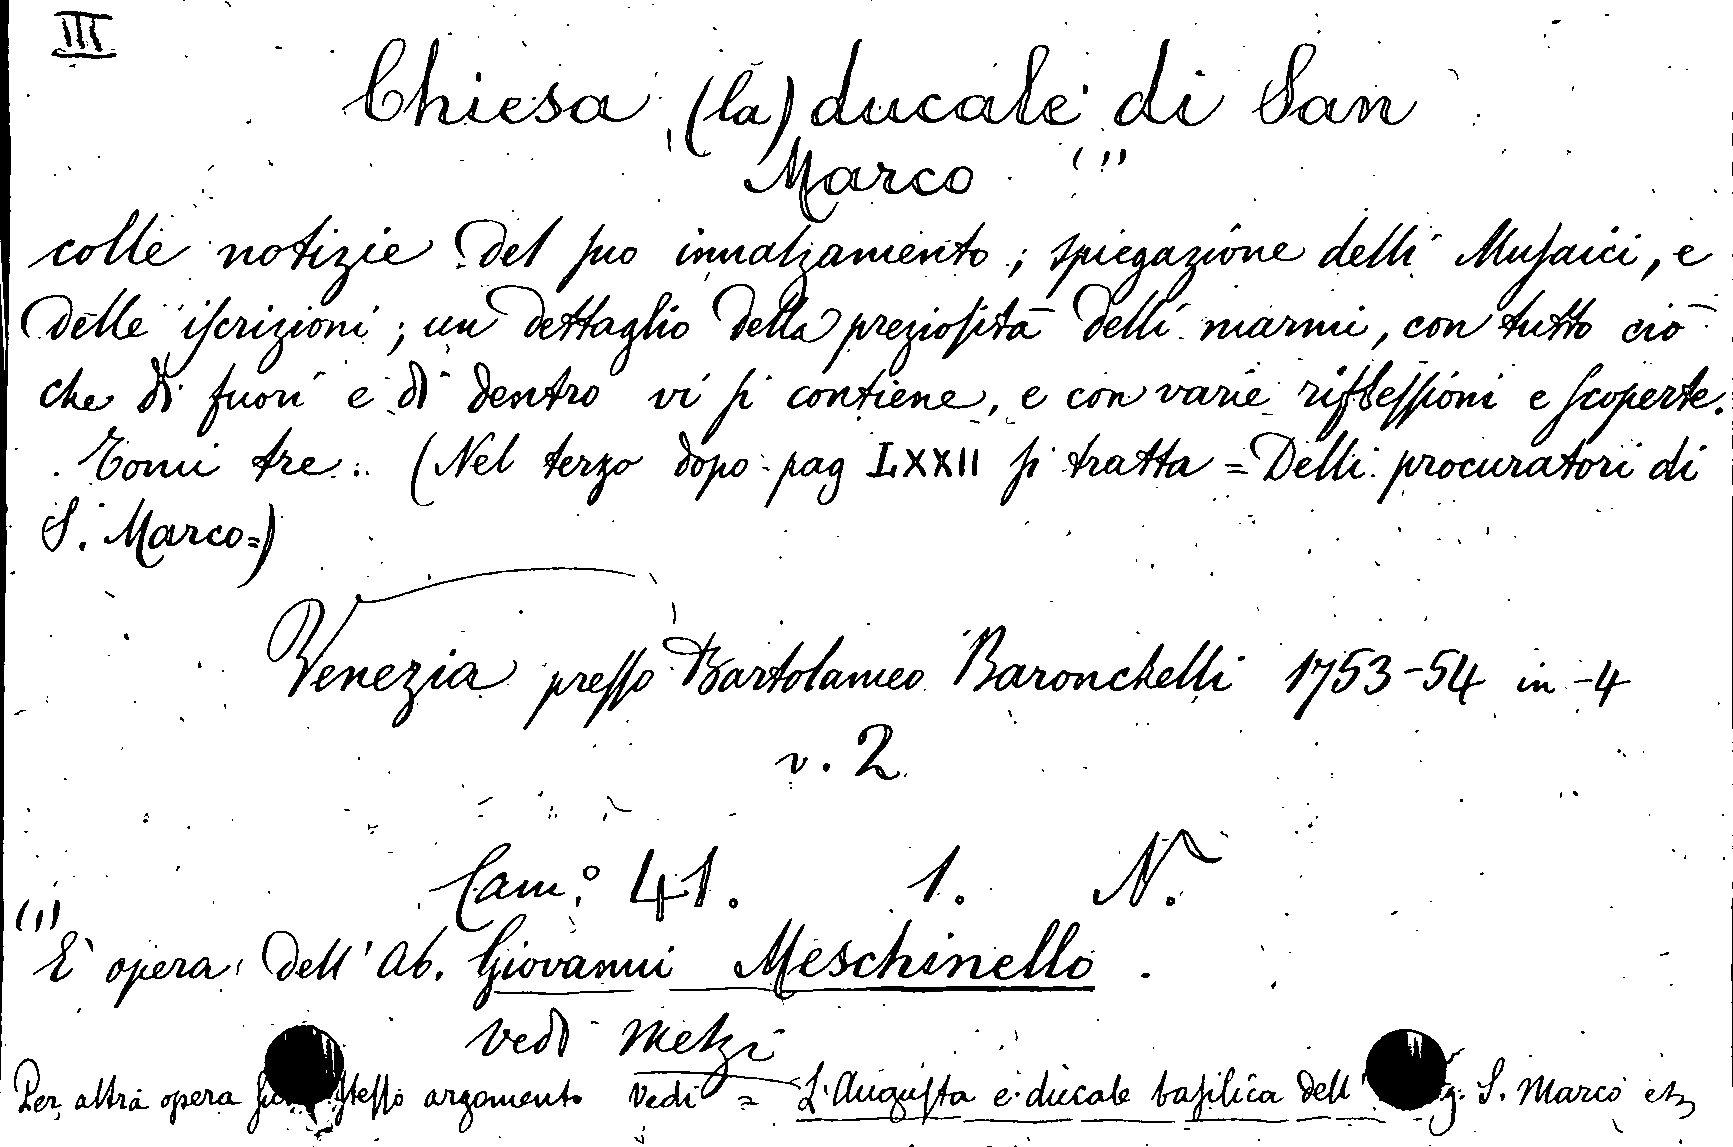 III
Chiesa (la) ducale di San
Marco (1)
colle notizie del suo innalzamento; spiegazione delli Musaici, e
delle iscrizioni; un dettaglio della preziosità delli marmi, con tutto ciò
che di fuori e di dentro vi si contiene, e con varie riflessioni e scoperte.
Tomi tre. (Nel terzo dopo pag LXXII si tratta = Delli procuratori di
S. Marco=)
Venezia presso Bartolameo Baronchelli 1753-54 in-4
v. 2
Cam.° 41. 1. N.
(1)
E' opera dell' Ab. Giovanni Meschinello.
vedi Metzi
Per altra opera stesso argomento vedi = L'Augusta e ducale basilica dell' S. Marco etc